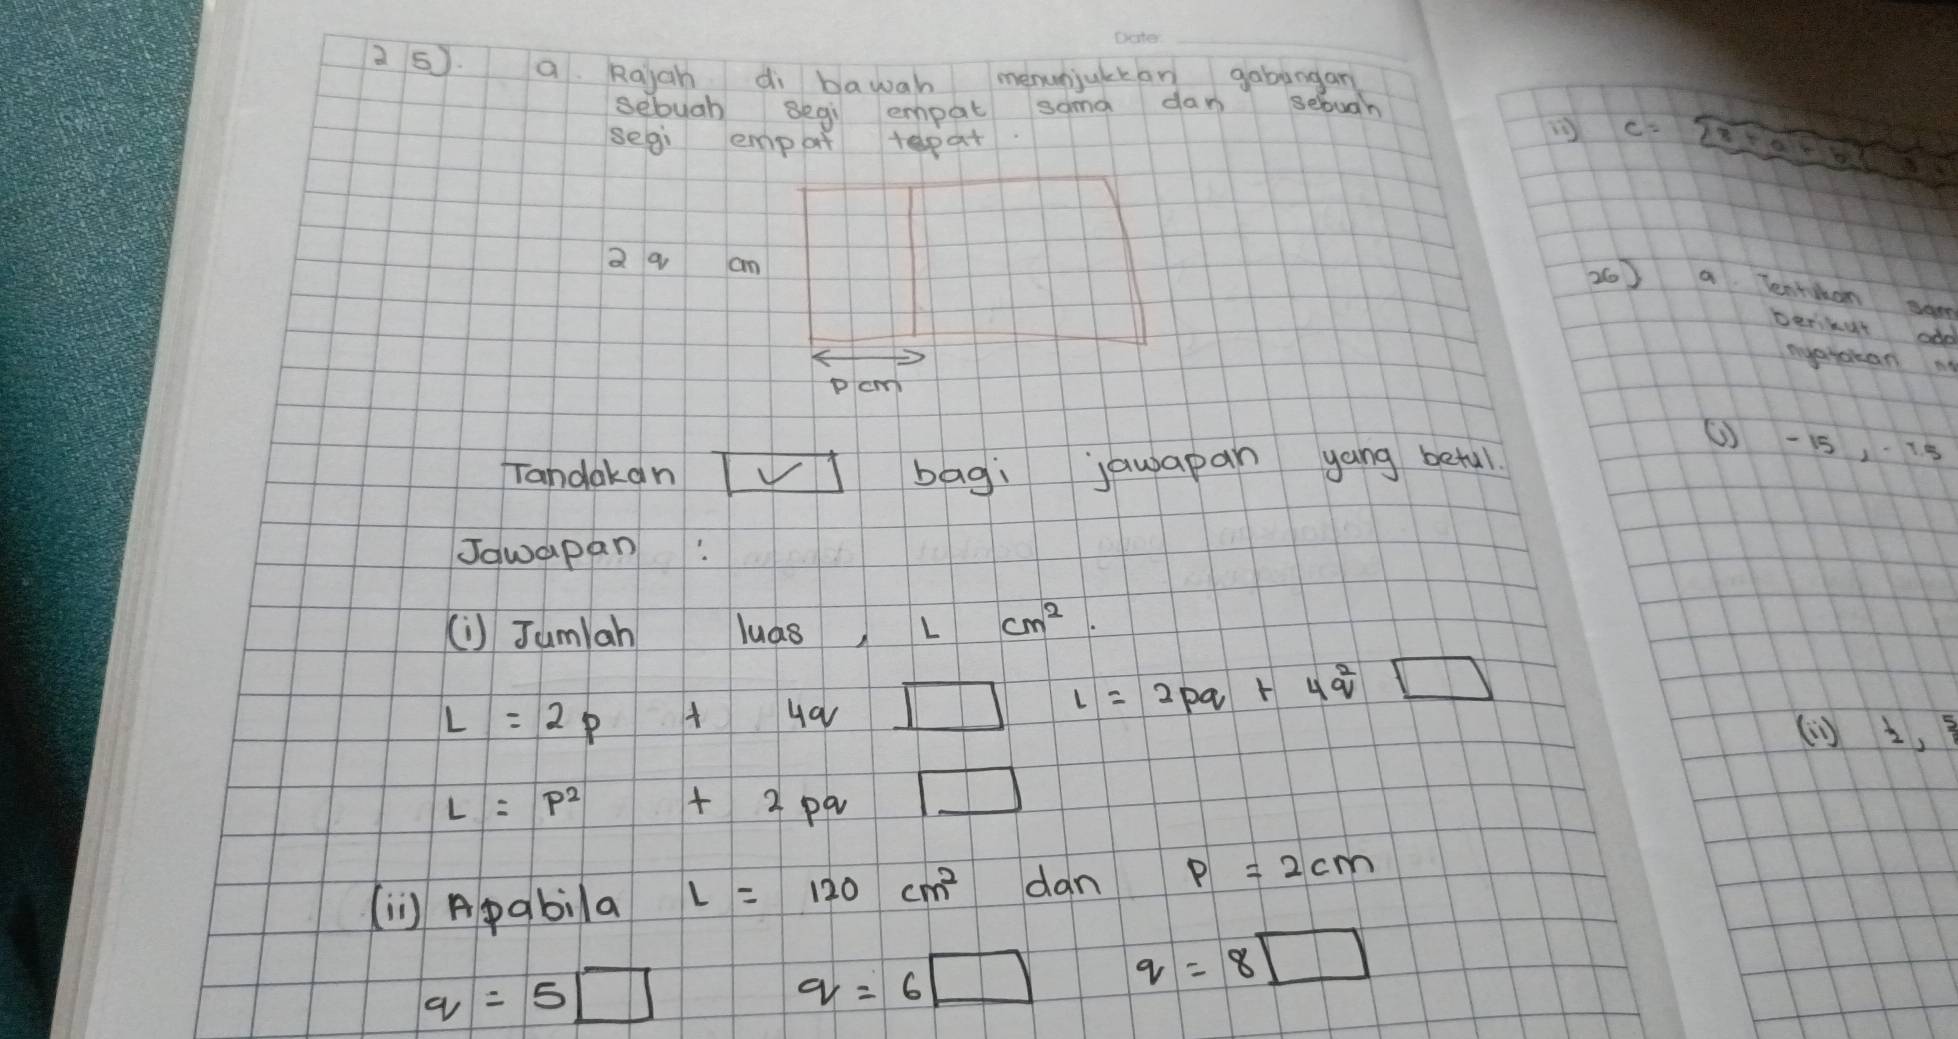 Date
25). a. Rajah di bawah menunjukkan gabungan
sebuah segi empat sama dan sebuah
segi empat tepat.
2q cm
p cm
Tandakan ✓ bagi jawapan yang betul.
Jawapan :
(i) Jumlah luas, L cm².
L = 2p + 4q L = 2pq + 4q²
L = p² + 2pq
(ii) Apabila L = 120 cm² dan p = 2cm
q = 5 q = 6 q = 8
ii) c =
26) a. Tentukan
berikut
nyatakan
(i) -15,
(ii) ½,